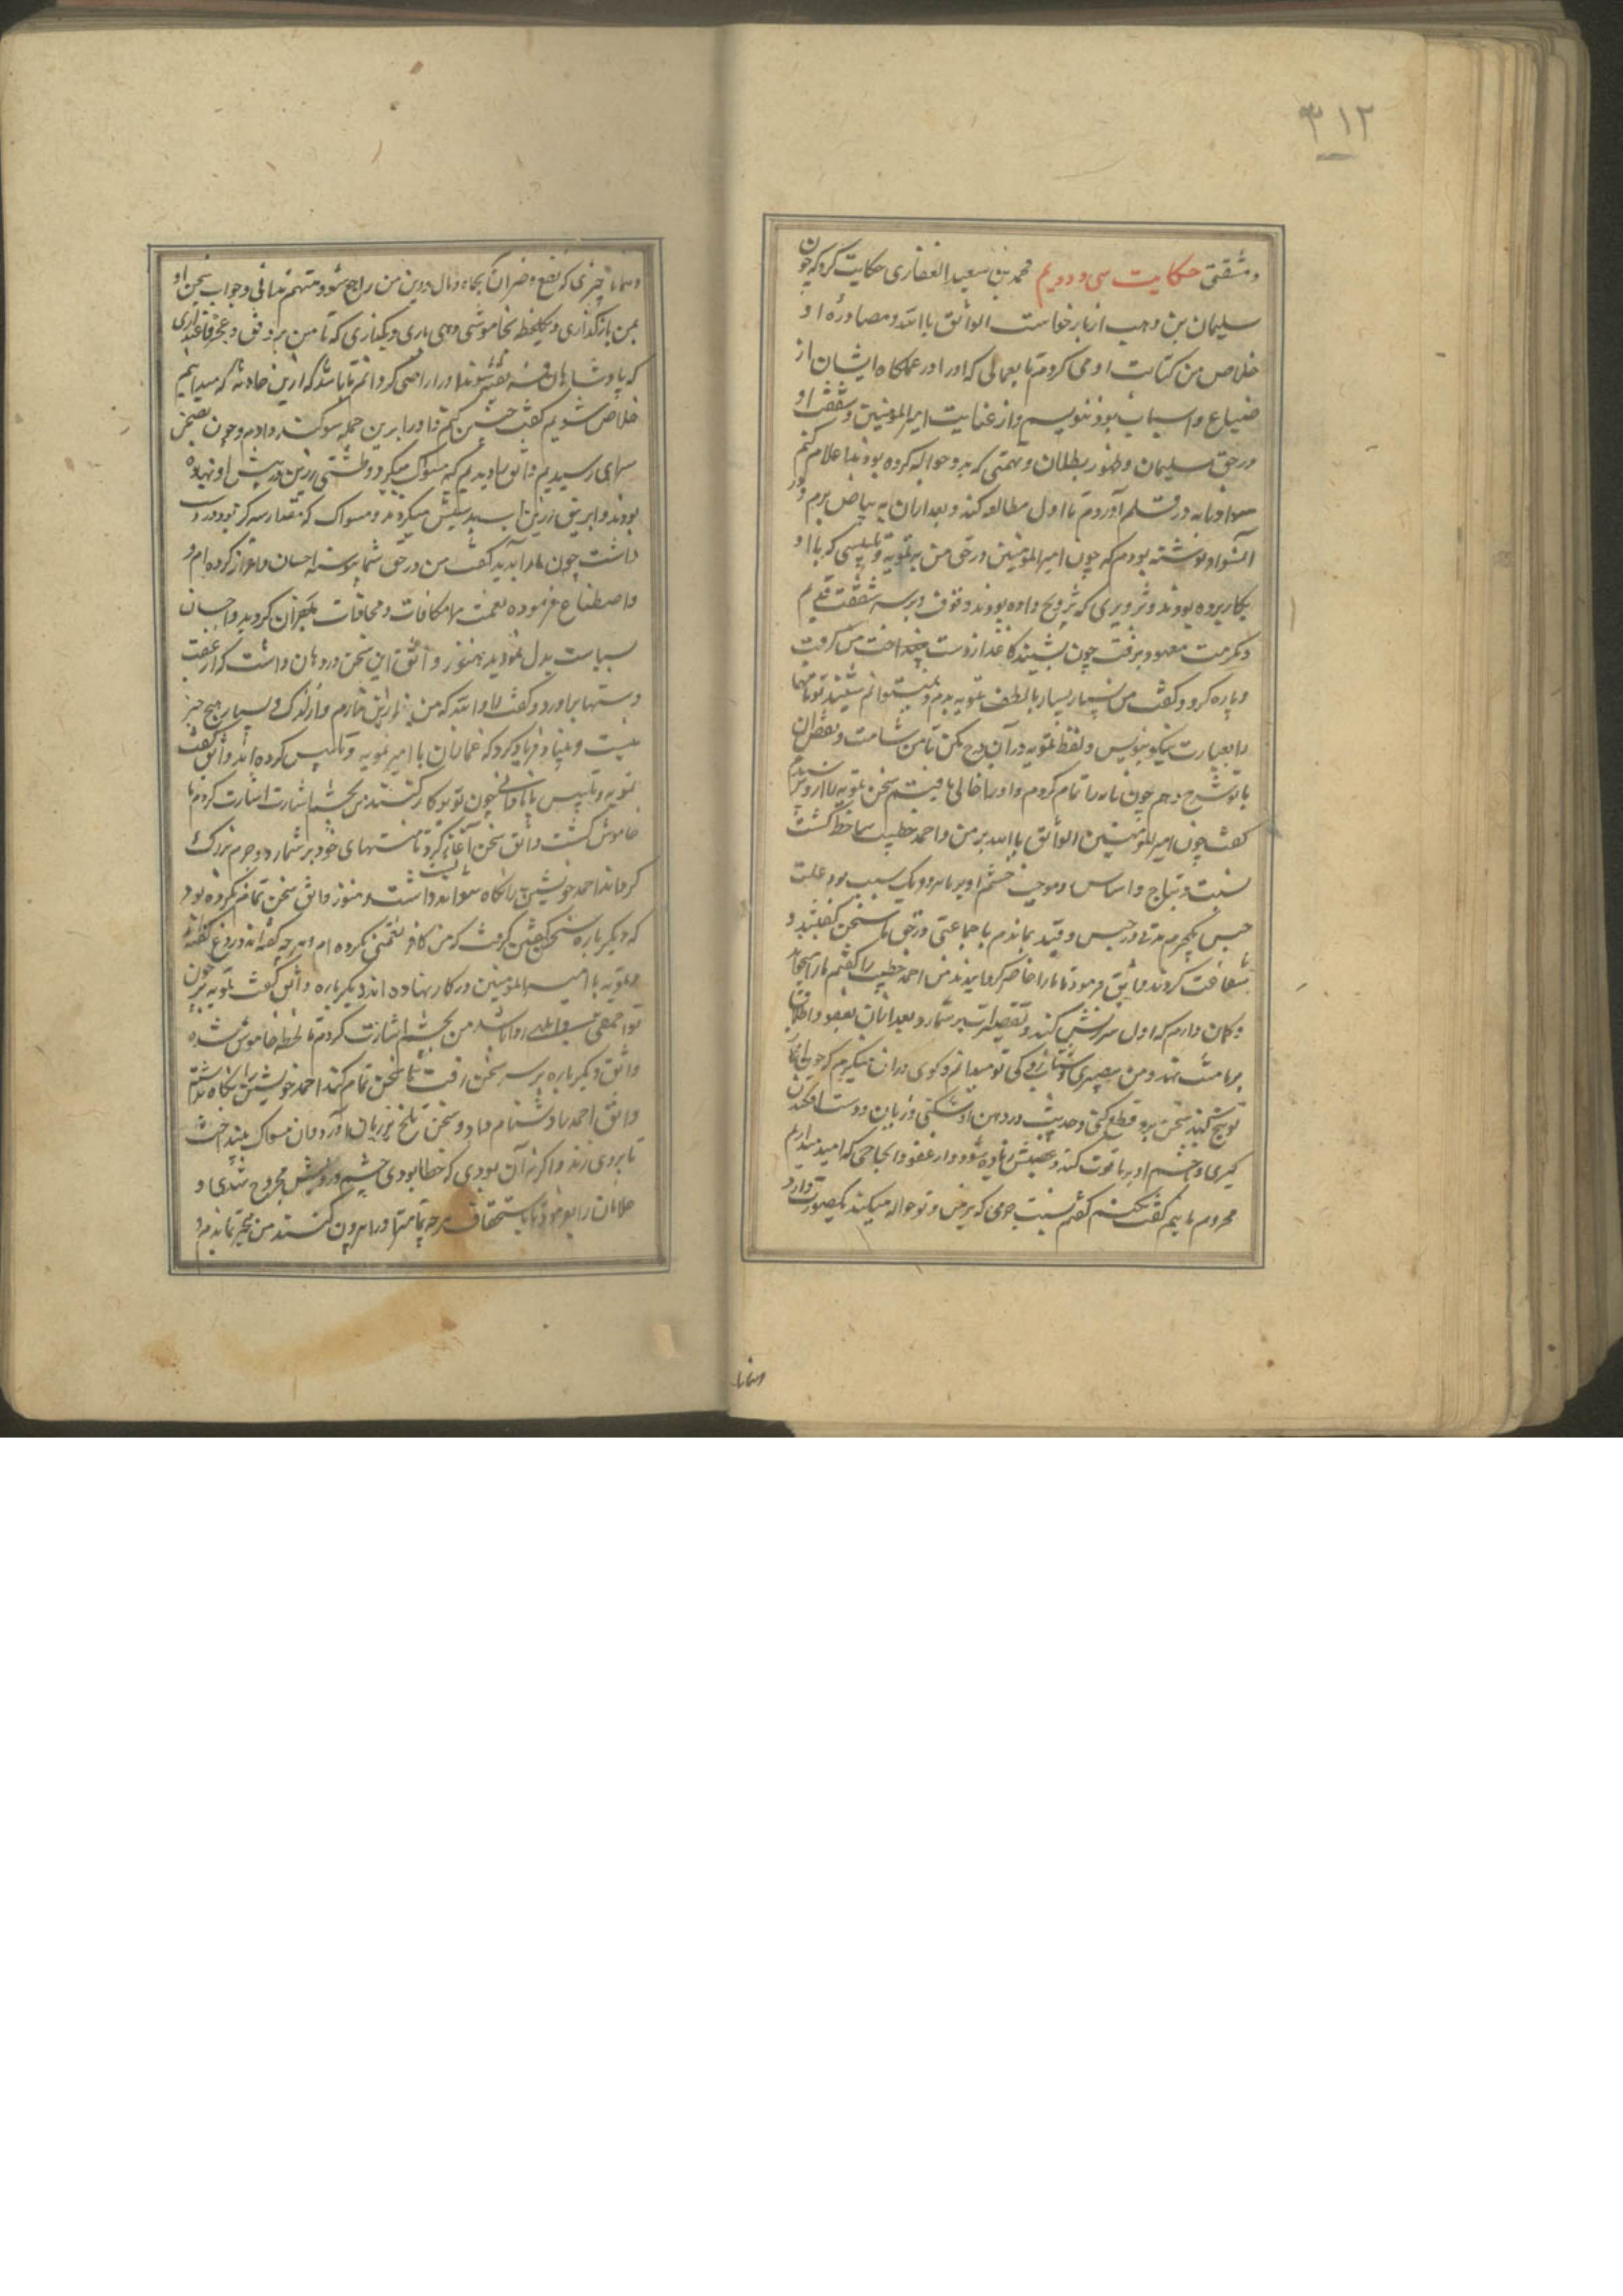 ٣١٢
ومشقتی حکایت سی و دویم محمد بن سعید الغفاری حکایت کرد که چون
سلیمان بن وهب از بازخواست الواثق بالله و مصادرهٔ او
خلاص من کتابت او می کردم تا بعمالی که او را در عملکاه ایشان از
ضیاع و اسباب بود بنویسم و از عنایت امیر المومنین و شفقت او
در حق سلیمان و ظهور بطلان و تهمتی که بدو حواله کرده بودند اعلام کنم
سواد نامه در قلم آوردم تا اول مطالعه کند و بعد از آن به بیاض برم و در
آن سواد نوشته بودم که چون امیر المومنین در حق من به تمویه و تلبیسی که با او
بکار برده بودند و تزویری که ترویج داده بودند وقوف و بر سر شفقت قدیم
و مکرمت معهود برفت چون بشنید کاغذ از دست بینداخت من گرفت
و پاره کرد و گفت من بسیار بسیار با لطف تمویه بدم و نمیتوانم شنید تو نامها
را بعبارت نیکو بنویس و لفظ تمویه در آن درج مکن تا من شامت و نقص آن
با تو شرح دهم چون نامه را تمام کردم و او را خالی یافتم سخن تمویه را از و پرسیدم
گفت چون امیر المومنین الواثق بالله بر من و احمد خطیب ساخط گشت
نسبت و نتاج و اساس و موجب خشم او بر ما هر دو یک سبب بود علت
حبس یکجرم مدتی در حبس و قید بماندم با جماعتی در حق ما سخن گفتند و
شفاعت کردند واثق فرمود تا ما را حاضر کردانیدند من احمد خطیب را گفتم ما را میخواند
و گمان دارم که اول سرزنش کند و تقصیرات بر شمارد و بعد از آن بعفو و اطلاق
بر ما منت نهد و من بیصبری و شتاب زدگی تو میدانم و گوی در آن میگیرم که چون ما را
توبیخ کند سخن برو قطع کنی و حدیث در دهن او شکنی و زبان و دست افکندن
گیری و خشم او بر ما قوت کند و غضبش زیاده شود و از عفو و انجاحی که امید میداریم
محروم مانیم گفت نکنم گفتم نسبت جرمی که بر من و تو حواله میکنند یکصورت دارد
وهمانا
وهمانا چیزی که نفع و ضر آن بجاه و مال و دین من راجع شود متهم ندانی و جواب سخن او
بمن بازگذاری و یکلحظه بخاموشی دهی یاری و بگذاری که تا من برفق و عجز
که پادشاهان فریفته شوند او را راضی گردانم تا باشد که ازین حادثه که میدانیم
خلاص شویم گفت چنین کنم و او را برین جمله سوگند دادم و چون بصحن
سرای رسیدیم واثق را دیدیم که مسواک میکرد و طشتی زرین در پیش او نهاده
بودند و ابریق زرین آب بدستش میکردند و مسواک که مقدار سه گز بود در دست
داشت چون ما را بدید گفت من در حق شما پیوسته احسان و اعزاز کرده ام و
و اصطناع فرموده نعمت مرا مکافات و محافات بکفران کردید و احسان
سیاست بدل نمودید هنوز واثق این سخن در دهان داشت که از عقب
دستها برآورد و گفت لا والله که من ازین ندارم و از اندک و بسیار هیچ چیز
نیست و بنیاد فریاد کرد که غمازان با امیر تمویه و تلبیس کرده اند واثق گفت
تمویه و تلبیس با نادانی چون تو بکار کنند من بچشم اشارت اشارت کردم تا
خاموش گشت واثق سخن آغاز کرد تا منتهای خود بر شمارد و جرم بزرگ
گرداند احمد خویشتن را نگاه نتوانست داشت و هنوز واثق سخن تمام نکرده بود
که دیگر باره سخن گفتن گرفت که من کافر نعمتی نکرده ام و هر چه گفته اند دروغ گفته اند
و تمویه با امیر المومنین در کار نهاده اند دیگر باره واثق گفت تمویه بر چون
تو احمقی روا باشد من بچشم اشارت کردم تا لحظه خاموش شده
واثق دیگر باره بر سر سخن رفت تا سخن تمام کند احمد خویشتن را نگاه نداشت
واثق احمد را دشنام داد و سخن تلخ بر زبان آورد و آن مسواک بینداخت
تا بروی زند و اگر نه آن بودی که خطا بودی چشم و رویش مجروح شدی و
غلامان را بفرمود تا باستخفاف هر چه تمامتر او را بیرون کنند من متحیر بماندم و